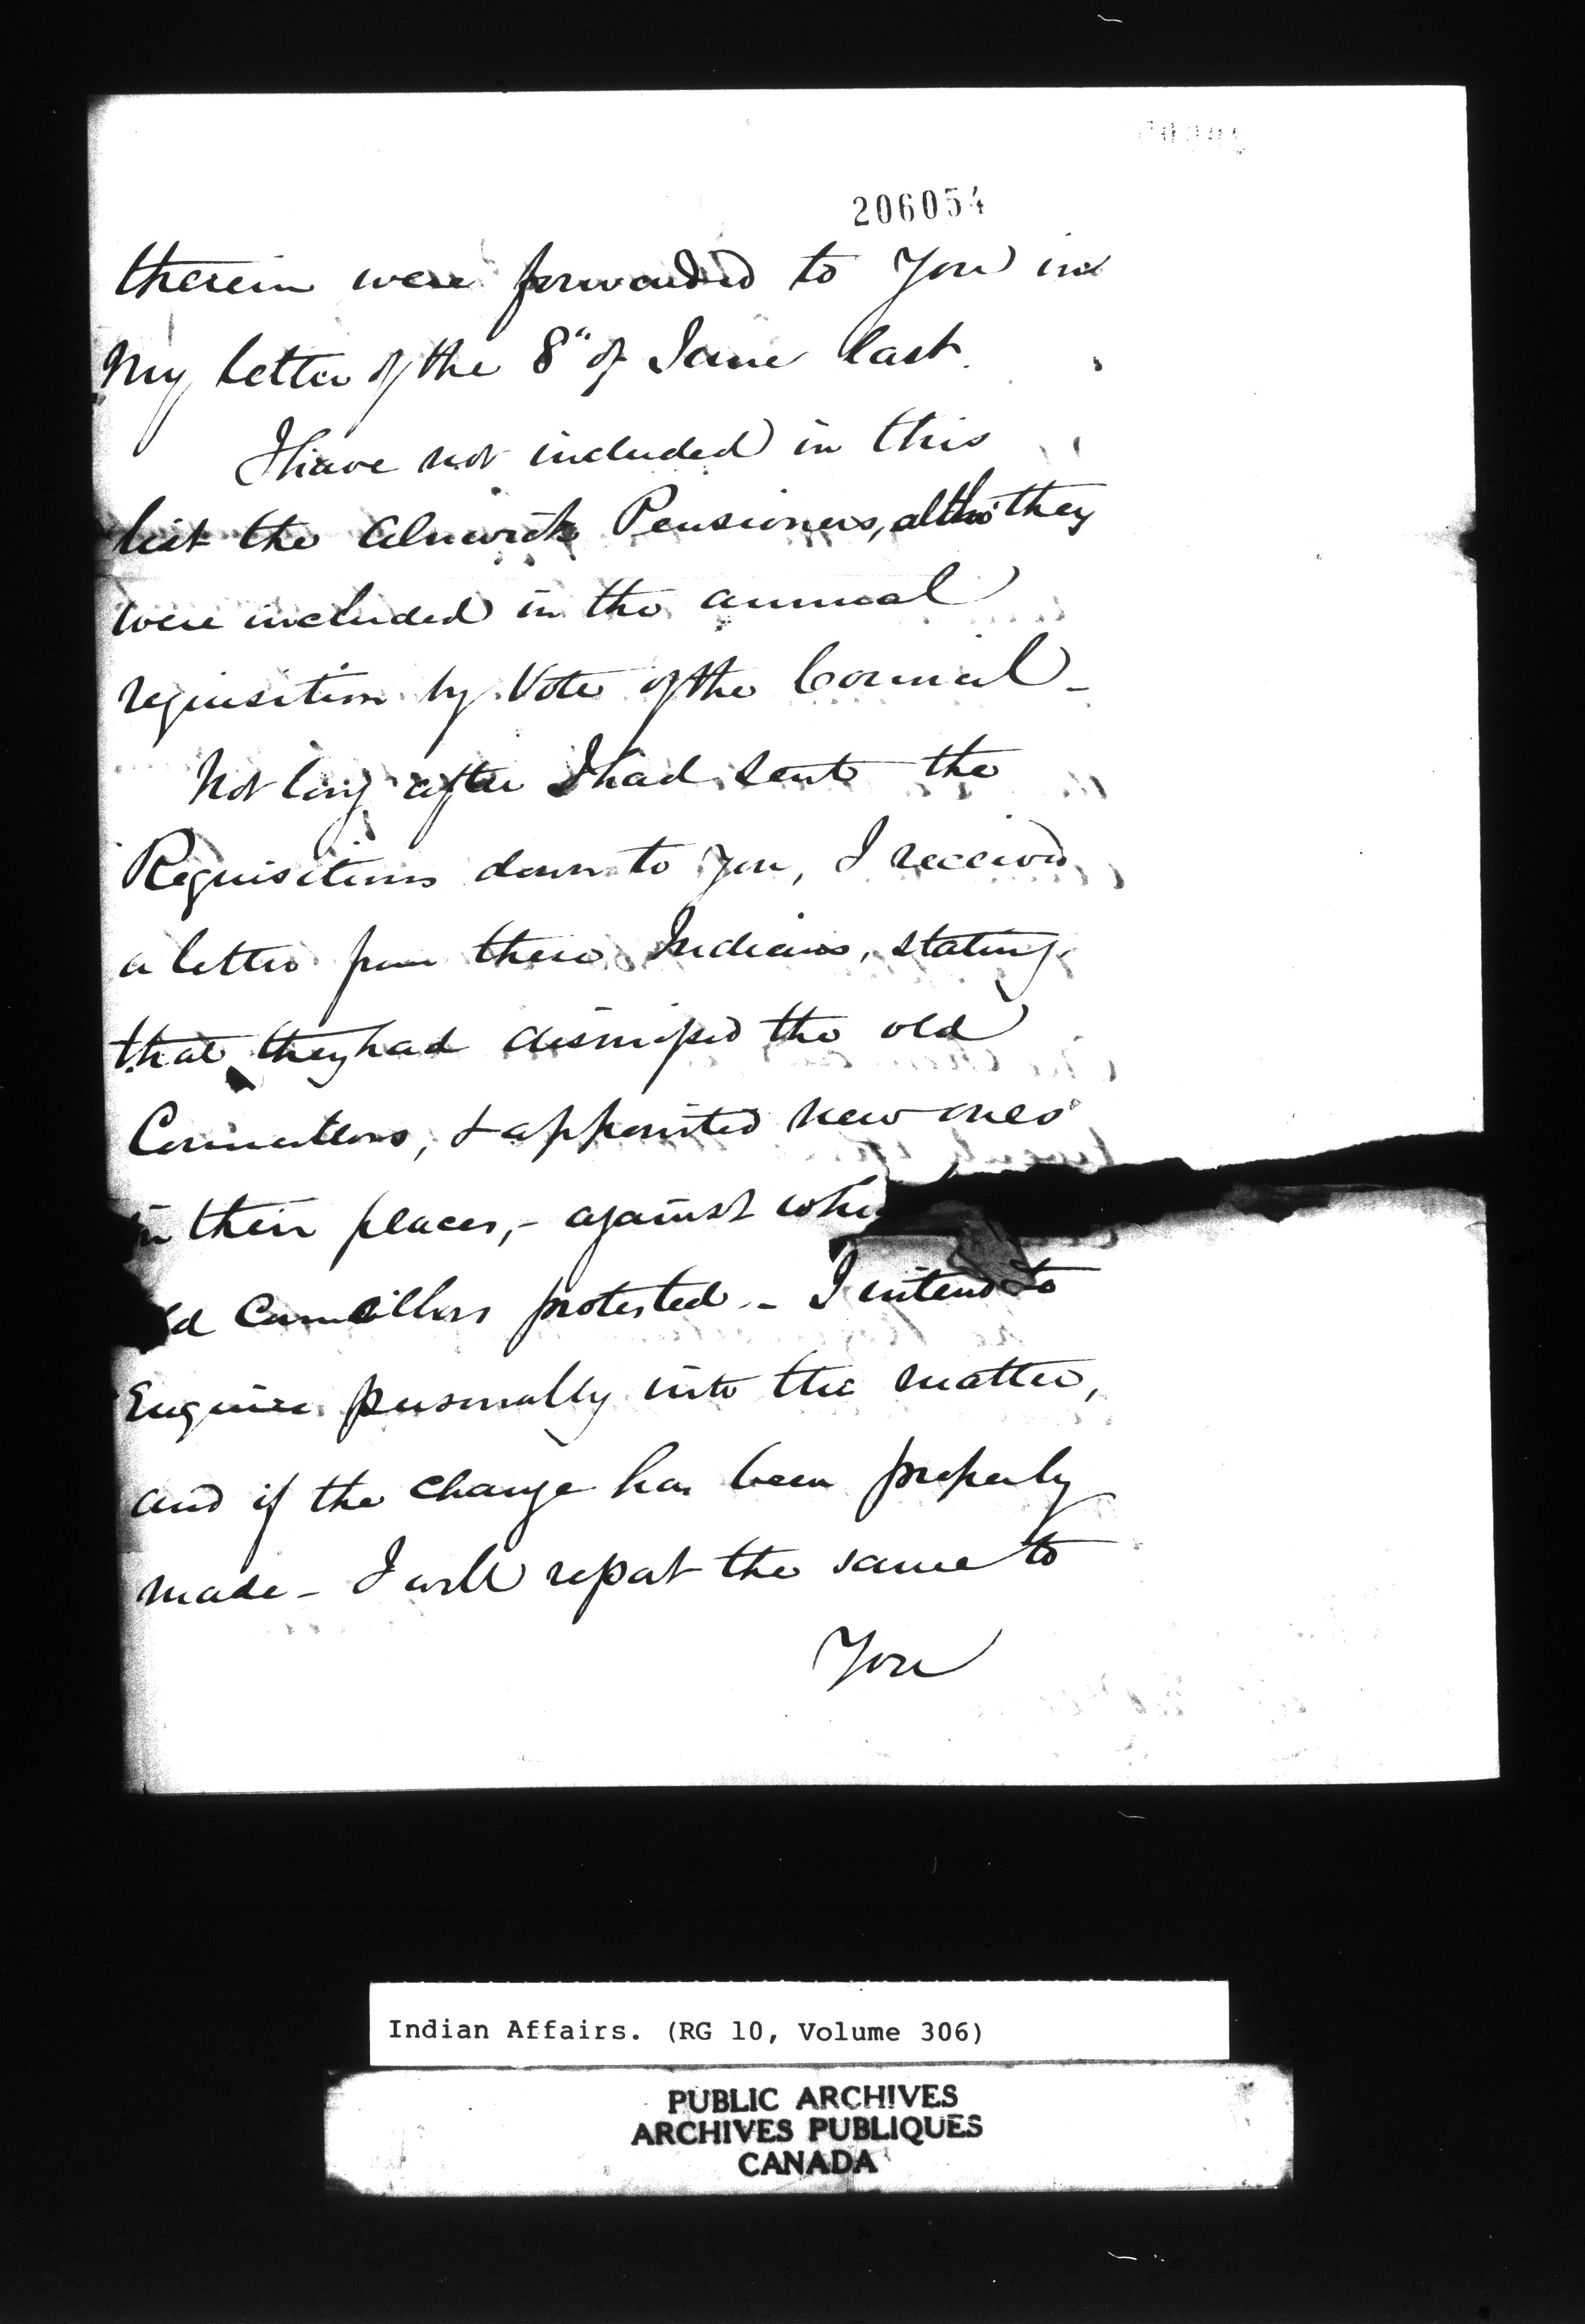 206054
therein were forwarded to you in
my letter of the 8" of June last.
I have not included in this
list the Alnwick Pensioners, altho' they
were included in the annual
requisition by Vote of the Council -
Not long after I had sent the
Requisitions down to you, I received
a letter from these Indians, stating
that they had dismissed the old
Councillors, & appointed new ones
in their places, - against
Councillors protested - I intend to
Enquire personally into the matter,
and if the change has been properly
made - I will report the same to
You
Indian Affairs. (RG 10, Volume 306)
PUBLIC ARCHIVES
ARCHIVES PUBLIQUES
CANADA